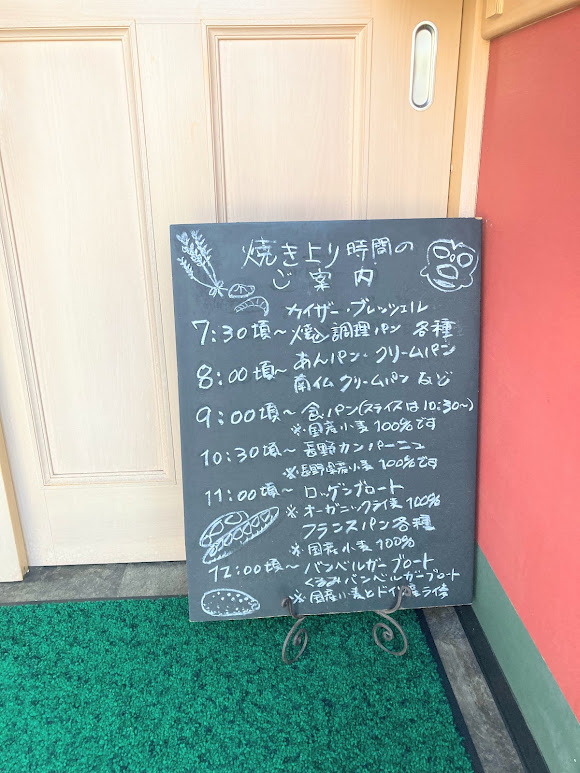 焼き上り時間の
ご案内
カイザー・ブレッツェル
7:30頃〜 焼込調理パン 各種
8:00頃〜 あんパン・クリームパン
南イムクリームパン など
9:00頃〜 食パン(スライスは10:30〜)
※国産小麦100%です
10:30頃〜 長野カンパーニュ
※長野県産小麦100%です
11:00頃〜 ロッゲンブロート
※オーガニックライ麦100%
フランスパン各種
※国産小麦100%
12:00頃〜 バンベルガーブロート
くるみバンベルガーブロート
※国産小麦とドイツ産ライ麦